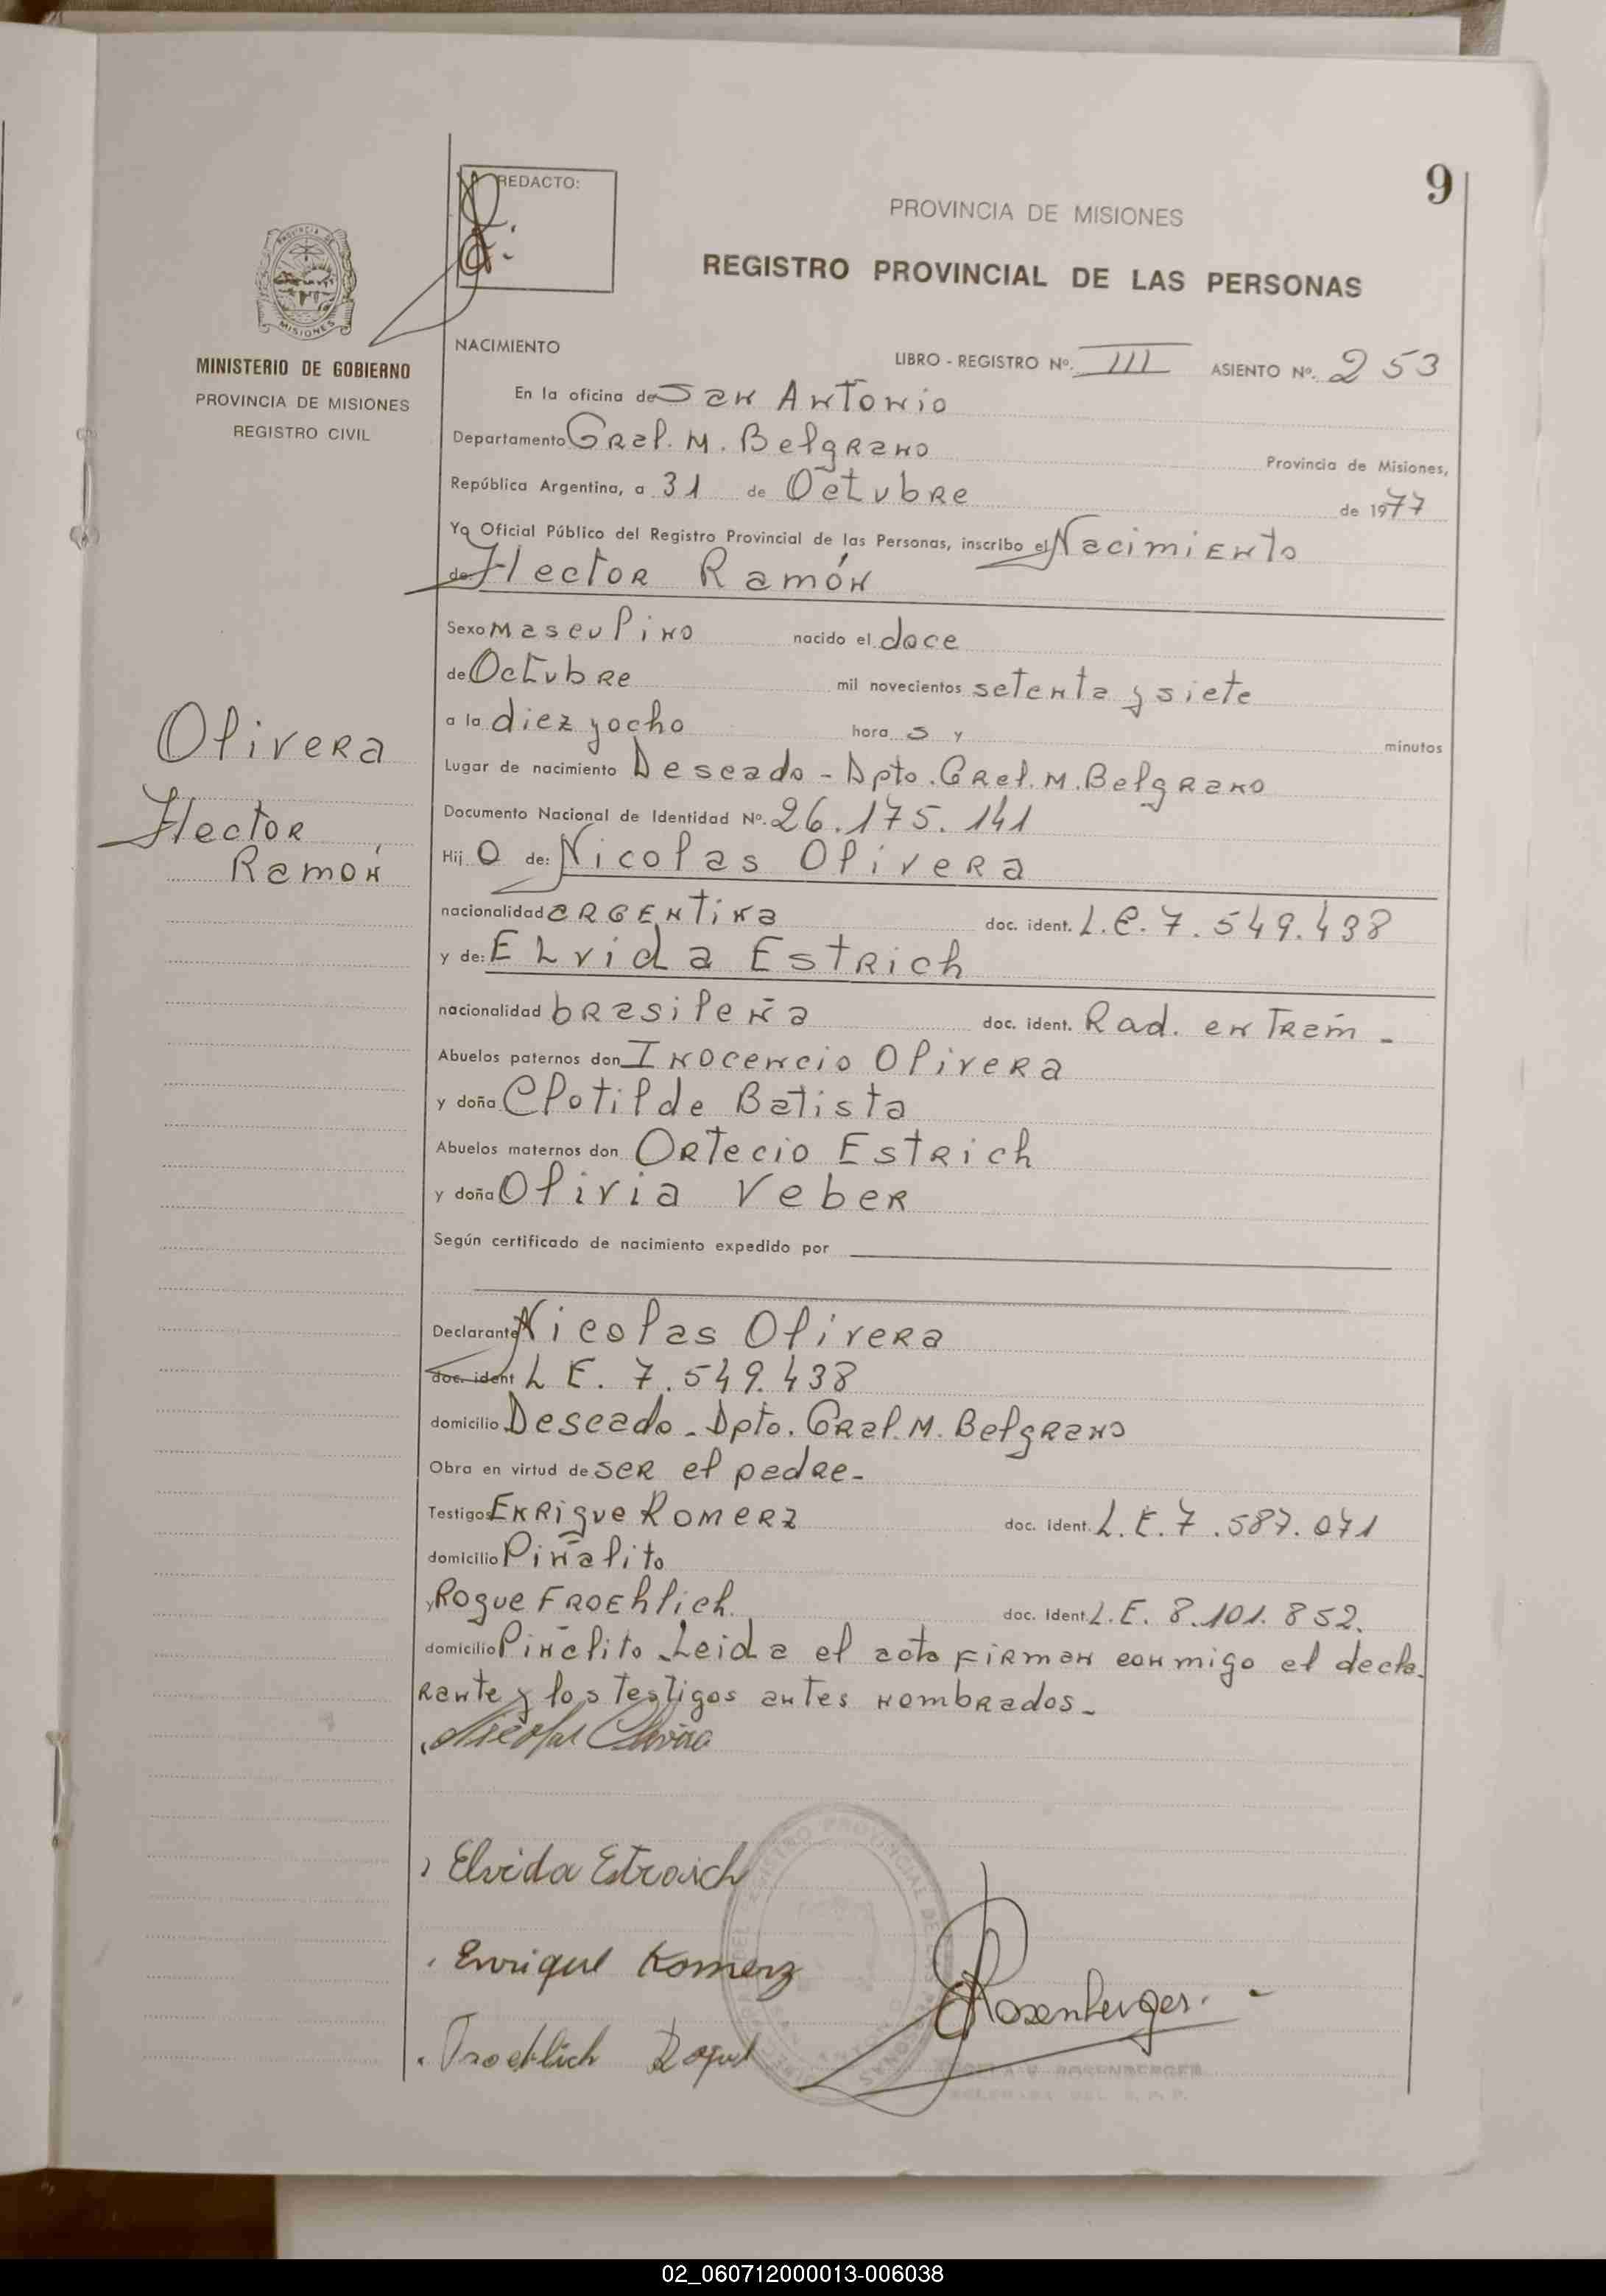 9
REDACTO:
PROVINCIA DE MISIONES
REGISTRO PROVINCIAL DE LAS PERSONAS
MISIONES
MINISTERIO DE GOBIERNO
PROVINCIA DE MISIONES
REGISTRO CIVIL
NACIMIENTO
LIBRO - REGISTRO Nº. III ASIENTO Nº. 253
En la oficina de San Antonio
Departamento Gral. M. Belgrano Provincia de Misiones,
República Argentina, a 31 de Octubre de 1977
Yo Oficial Público del Registro Provincial de las Personas, inscribo el Nacimiento
de Hector Ramón
Sexo masculino nacido el doce
de Octubre mil novecientos setenta y siete
a la diez y ocho hora s y minutos
Lugar de nacimiento Deseado - Dpto. Gral. M. Belgrano
Documento Nacional de Identidad Nº. 26.175.141
Hij o de: Nicolas Olivera
nacionalidad argentina doc. ident. L.E. 7.549.438
y de: Elvida Estrich
nacionalidad brasileña doc. ident. Rad. en Tram -
Abuelos paternos don Inocencio Olivera
y doña Clotilde Batista
Abuelos maternos don Ortecio Estrich
y doña Olivia Veber
Según certificado de nacimiento expedido por
Declarante Nicolas Olivera
doc. ident L E. 7.549.438
domicilio Deseado - Dpto. Gral. M. Belgrano
Obra en virtud de ser el padre -
Testigos Enrique Romerz doc. ident. L.E. 7.587.071
domicilio Piñalito
y Roque Froehlich. doc. Ident. L.E. 8.101.852.
domicilio Piñalito - Leida el acta firman conmigo el decla-
rante y los testigos antes nombrados -
Nicolas Olivera
Elvida Estraich
Enrique Romerz
Froehlich Roque
Rosenberger
Olivera
Hector
Ramón
ROSENBERGER
02_060712000013-006038